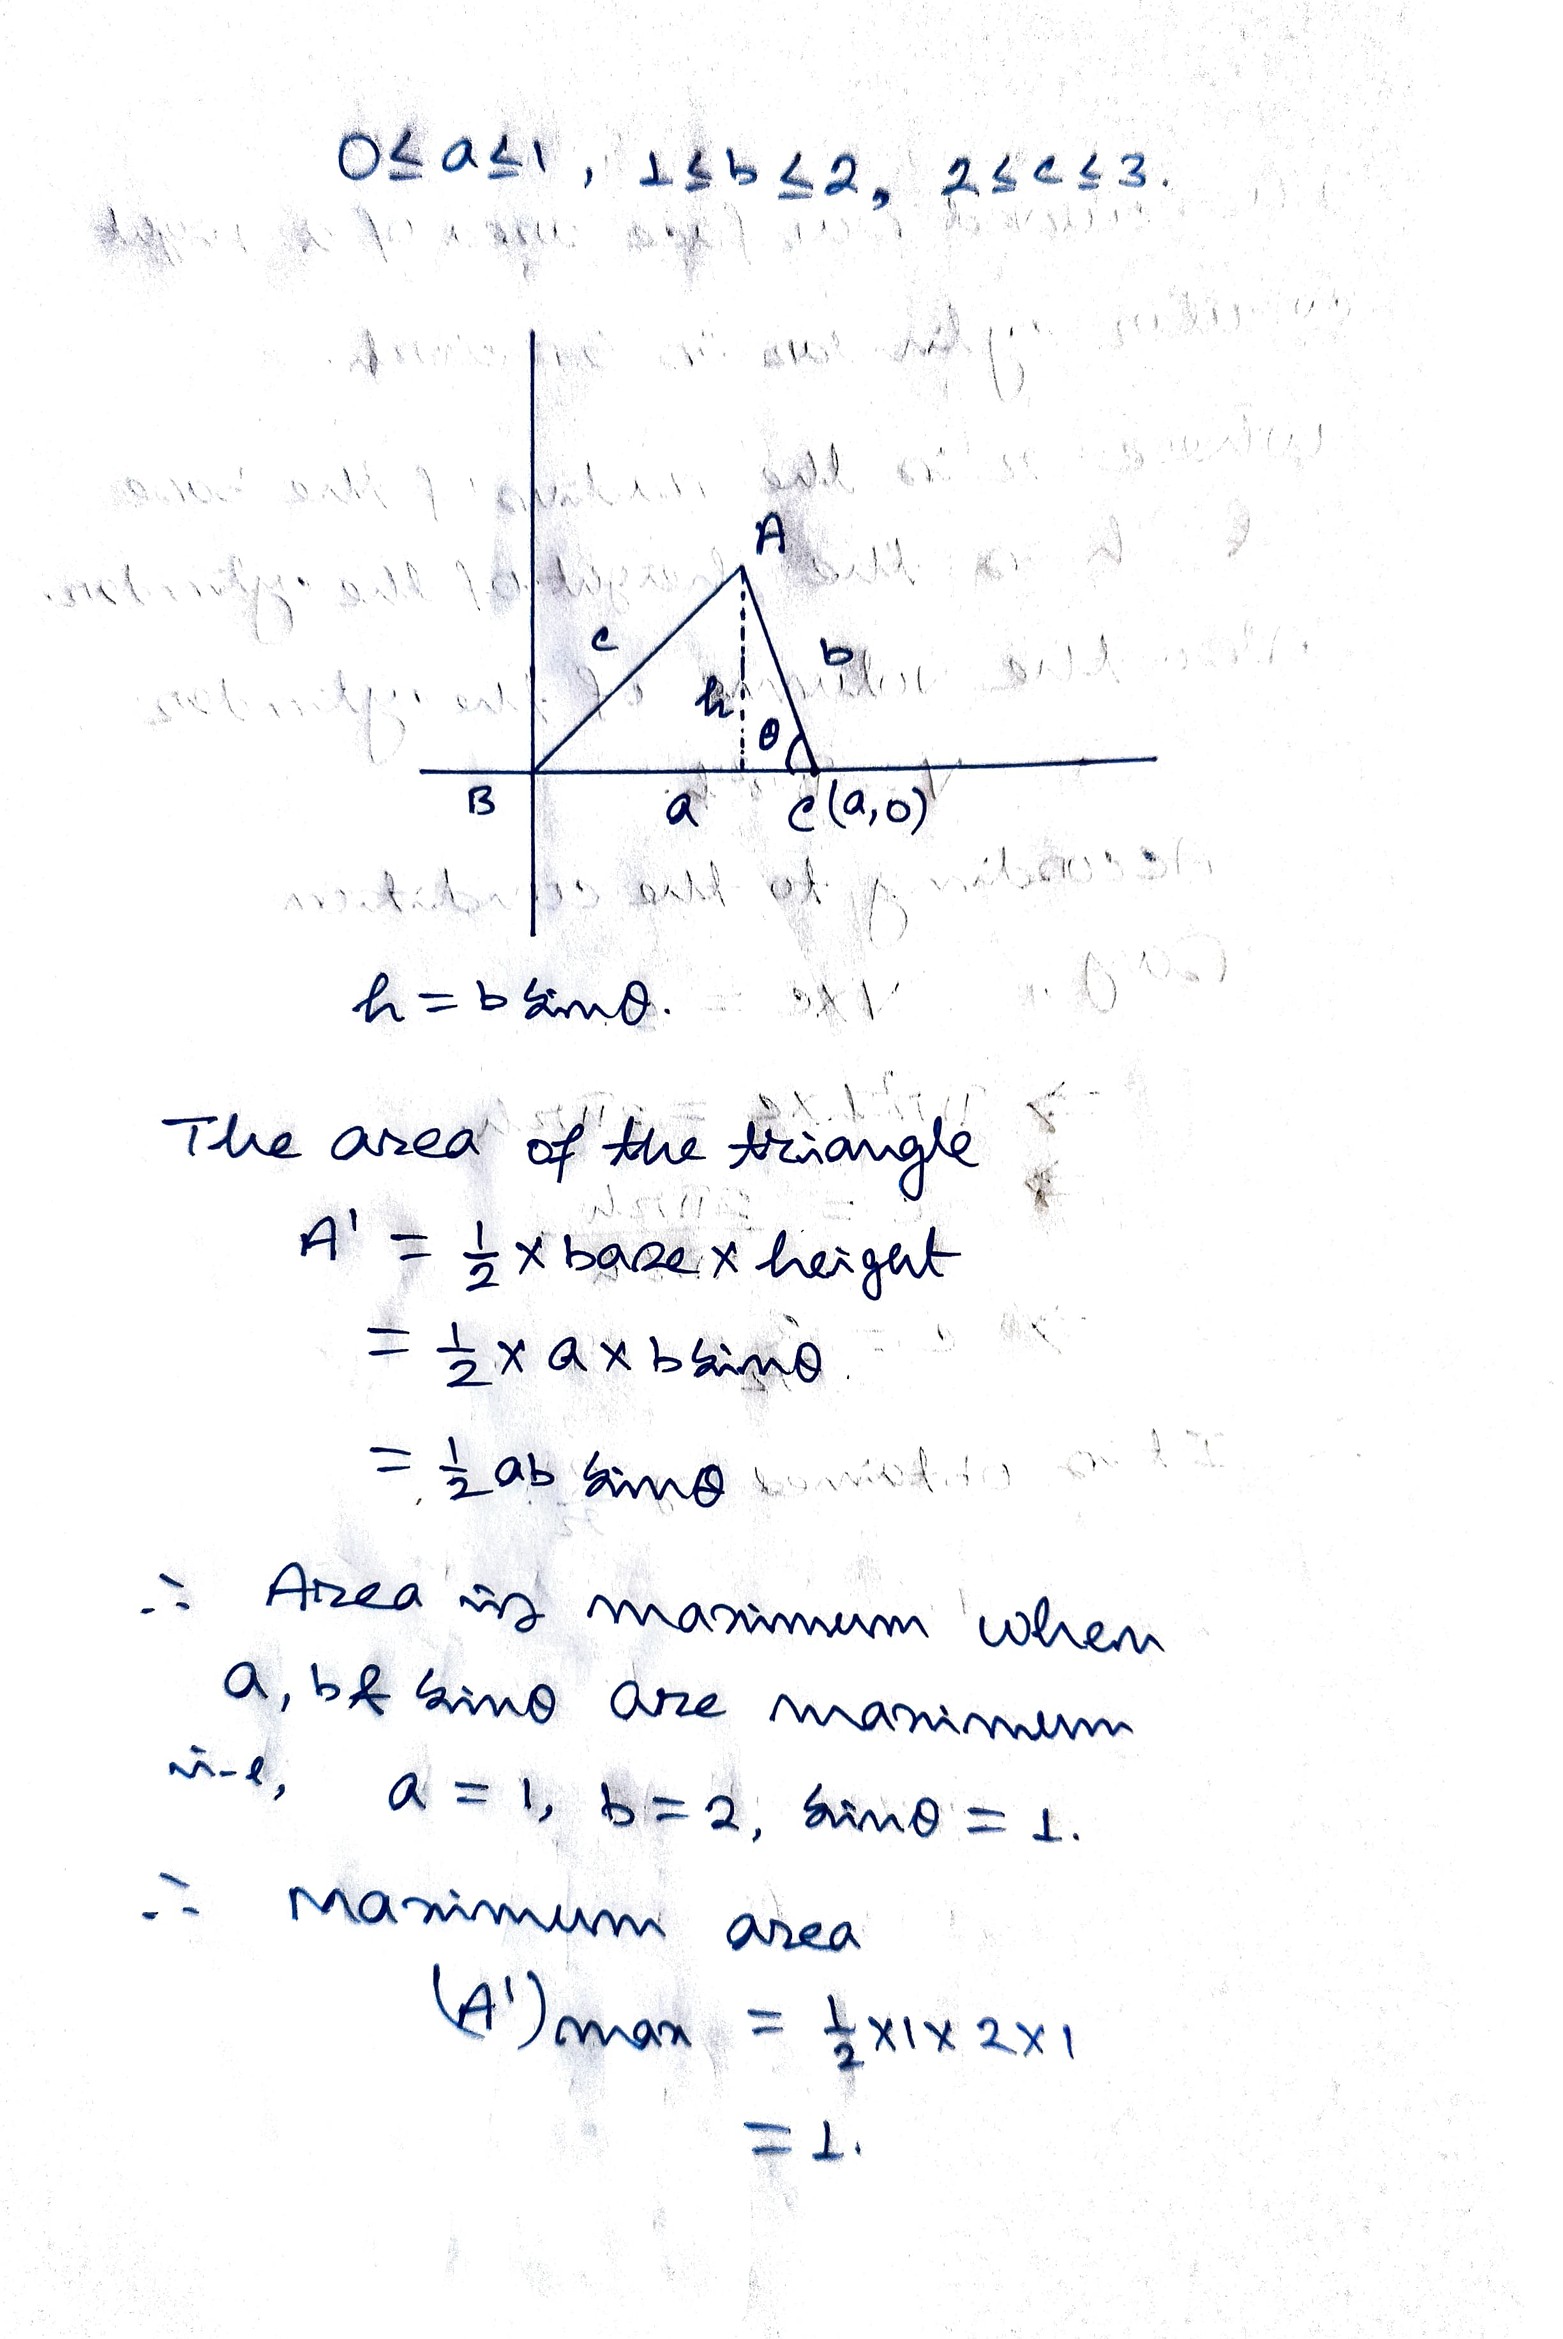 0≤a≤1, 1≤b≤2, 2≤c≤3.
A
c
b
h
θ
B
a
C(a,0)
h = b sinθ.
The area of the triangle
A' = 1/2 × base × height
= 1/2 × a × b sinθ.
= 1/2 ab sinθ
∴ Area is maximum when
a, b & sinθ are maximum
i-e, a = 1, b = 2, sinθ = 1.
∴ Maximum area
(A')max = 1/2 × 1 × 2 × 1
= 1.